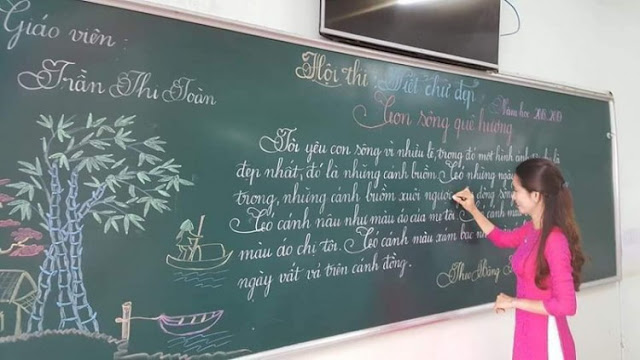 Giáo viên:
Trần Thị Toàn
Hội thi: Viết chữ đẹp
Năm học
Con sông quê hương
Tôi yêu con sông vì nhiều lẽ, trong đó một hình ảnh là
đẹp nhất, đó là những cánh buồm. Có những ngày
trong, những cánh buồm xuôi ngược dòng sông
Có cánh nâu như màu áo của mẹ tôi. Có cánh
màu áo chị tôi. Có cánh màu xám bạc
ngày vất vả trên cánh đồng.
Theo Băng Sơn